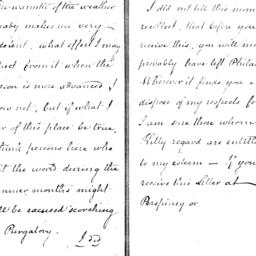 the warmth of the weather
makes me very
what effect I may
from it when the
is more advanced I
now not, but if what I
of this place be true,
think persons here who
the word during the
summer months might
be excused scorching
Purgatory.
I did not till this mom
recollect, that before you
receive this, you will mo
probably have left Philad
Wherever it finds you
dispose of my respects fo
I am sure those whom
Kitty regard are entitl
to my esteem — If you
receive this letter at